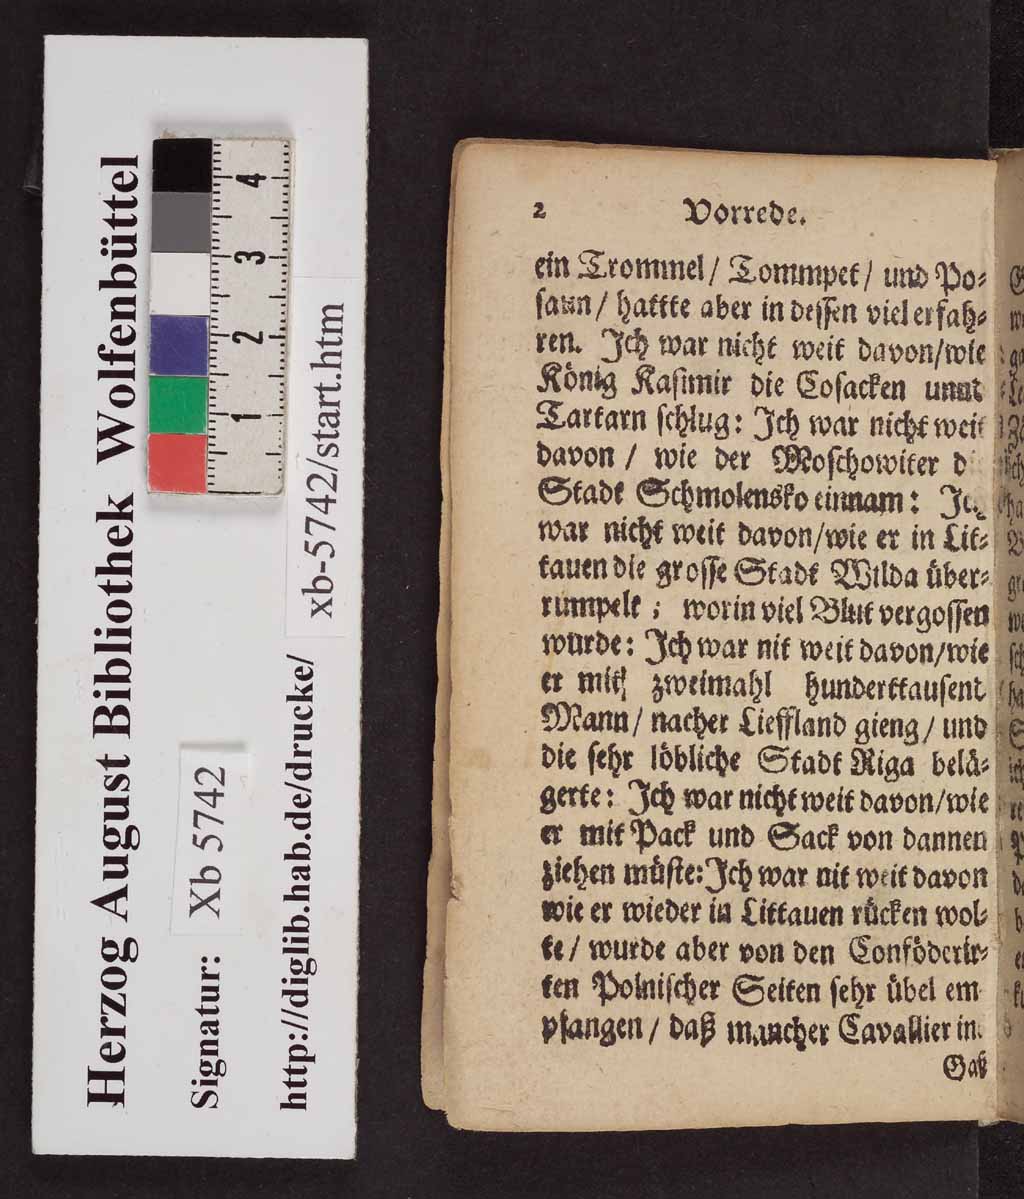 Herzog August Bibliothek Wolfenbüttel
Signatur: Xb 5742
http://diglib.hab.de/drucke/
xb-5742/start.htm
4
3
2
1
2 Vorrede.
ein Trommel/ Tommpet/ und Po⸗
saun/ hattte aber in dessen viel erfah⸗
ren. Jch war nicht weit davon/wie
König Kasimir die Cosacken unnd
Tartarn schlug: Jch war nicht weit
davon / wie der Moschowiter
Stadt Schmolensko einnam: Jch
war nicht weit davon/wie er in Lit⸗
tauen die grosse Stadt Wilda über⸗
rumpelt ; worin viel Blut vergossen
wurde: Jch war nit weit davon/wie
er mit zweimahl hunderttausent
Mann/ nacher Lieffland gieng/ und
die sehr löbliche Stadt Riga belä⸗
gerte: Jch war nicht weit davon/wie
er mit Pack und Sack von dannen
ziehen müste: Jch war nit weit davon
wie er wieder in Littauen rücken wol⸗
te/ wurde aber von den Conföderir⸗
ten Polnischer Seiten sehr übel em
pfangen/ daß mancher Cavallier in
Gaß